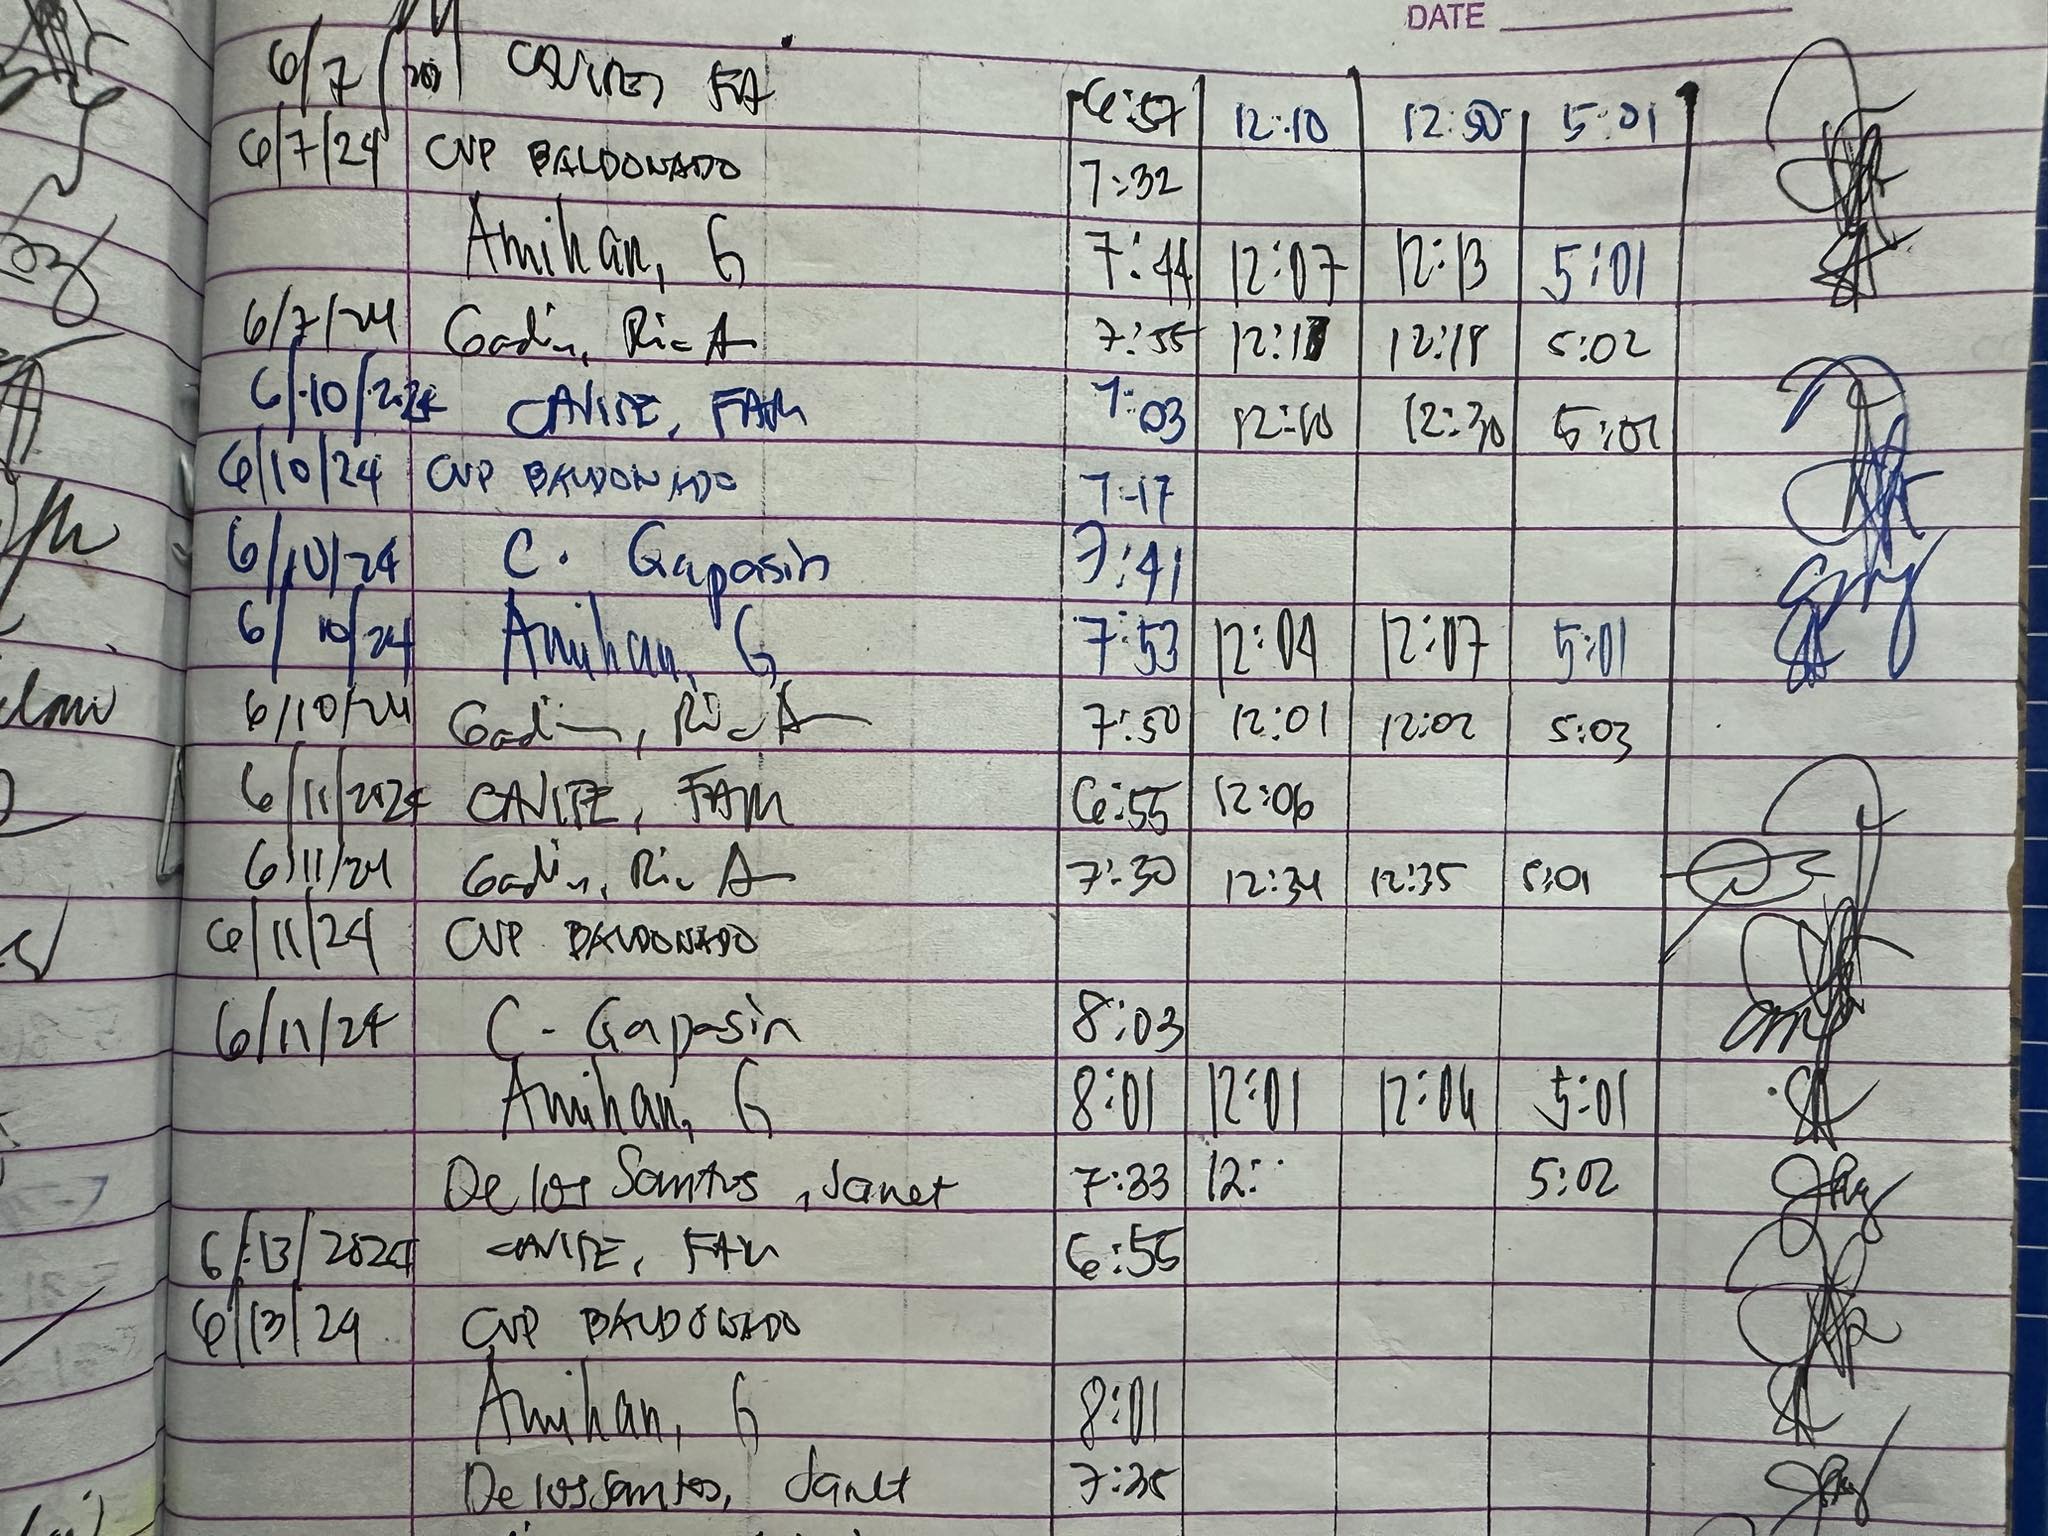 DATE
6/7/ CAVITE, FA 6:57 12:10 12:50 5:01
6/7/24 CVP BALDONADO 7:32
Amihan, G 7:44 12:07 12:13 5:01
6/7/24 Gadin, Ric A 7:55 12:18 5:02
6/10/2024 CAVITE, FAM 7:03 12:10 12:30 5:02
6/10/24 CVP BALDONADO 7:17
6/10/24 C. Gapasin 7:41
6/10/24 Amihan, G 7:53 12:04 12:07 5:01
6/10/24 Gadin, Ric A 7:50 12:01 12:02 5:03
6/11/2024 CAVITE, FAM 6:55 12:06
6/11/24 Gadin, Ric A 7:30 12:34 12:35 5:01
6/11/24 CVP BALDONADO
6/11/24 C - Gapasin 8:03
Amihan, G 8:01 12:01 12:04 5:01
De los Santos, Janet 7:33 12: 5:02
6/13/2024 CAVITE, FAM 6:55
6/13/24 CVP BALDONADO
Amihan, G 8:01
De los Santos, Janet 7:35